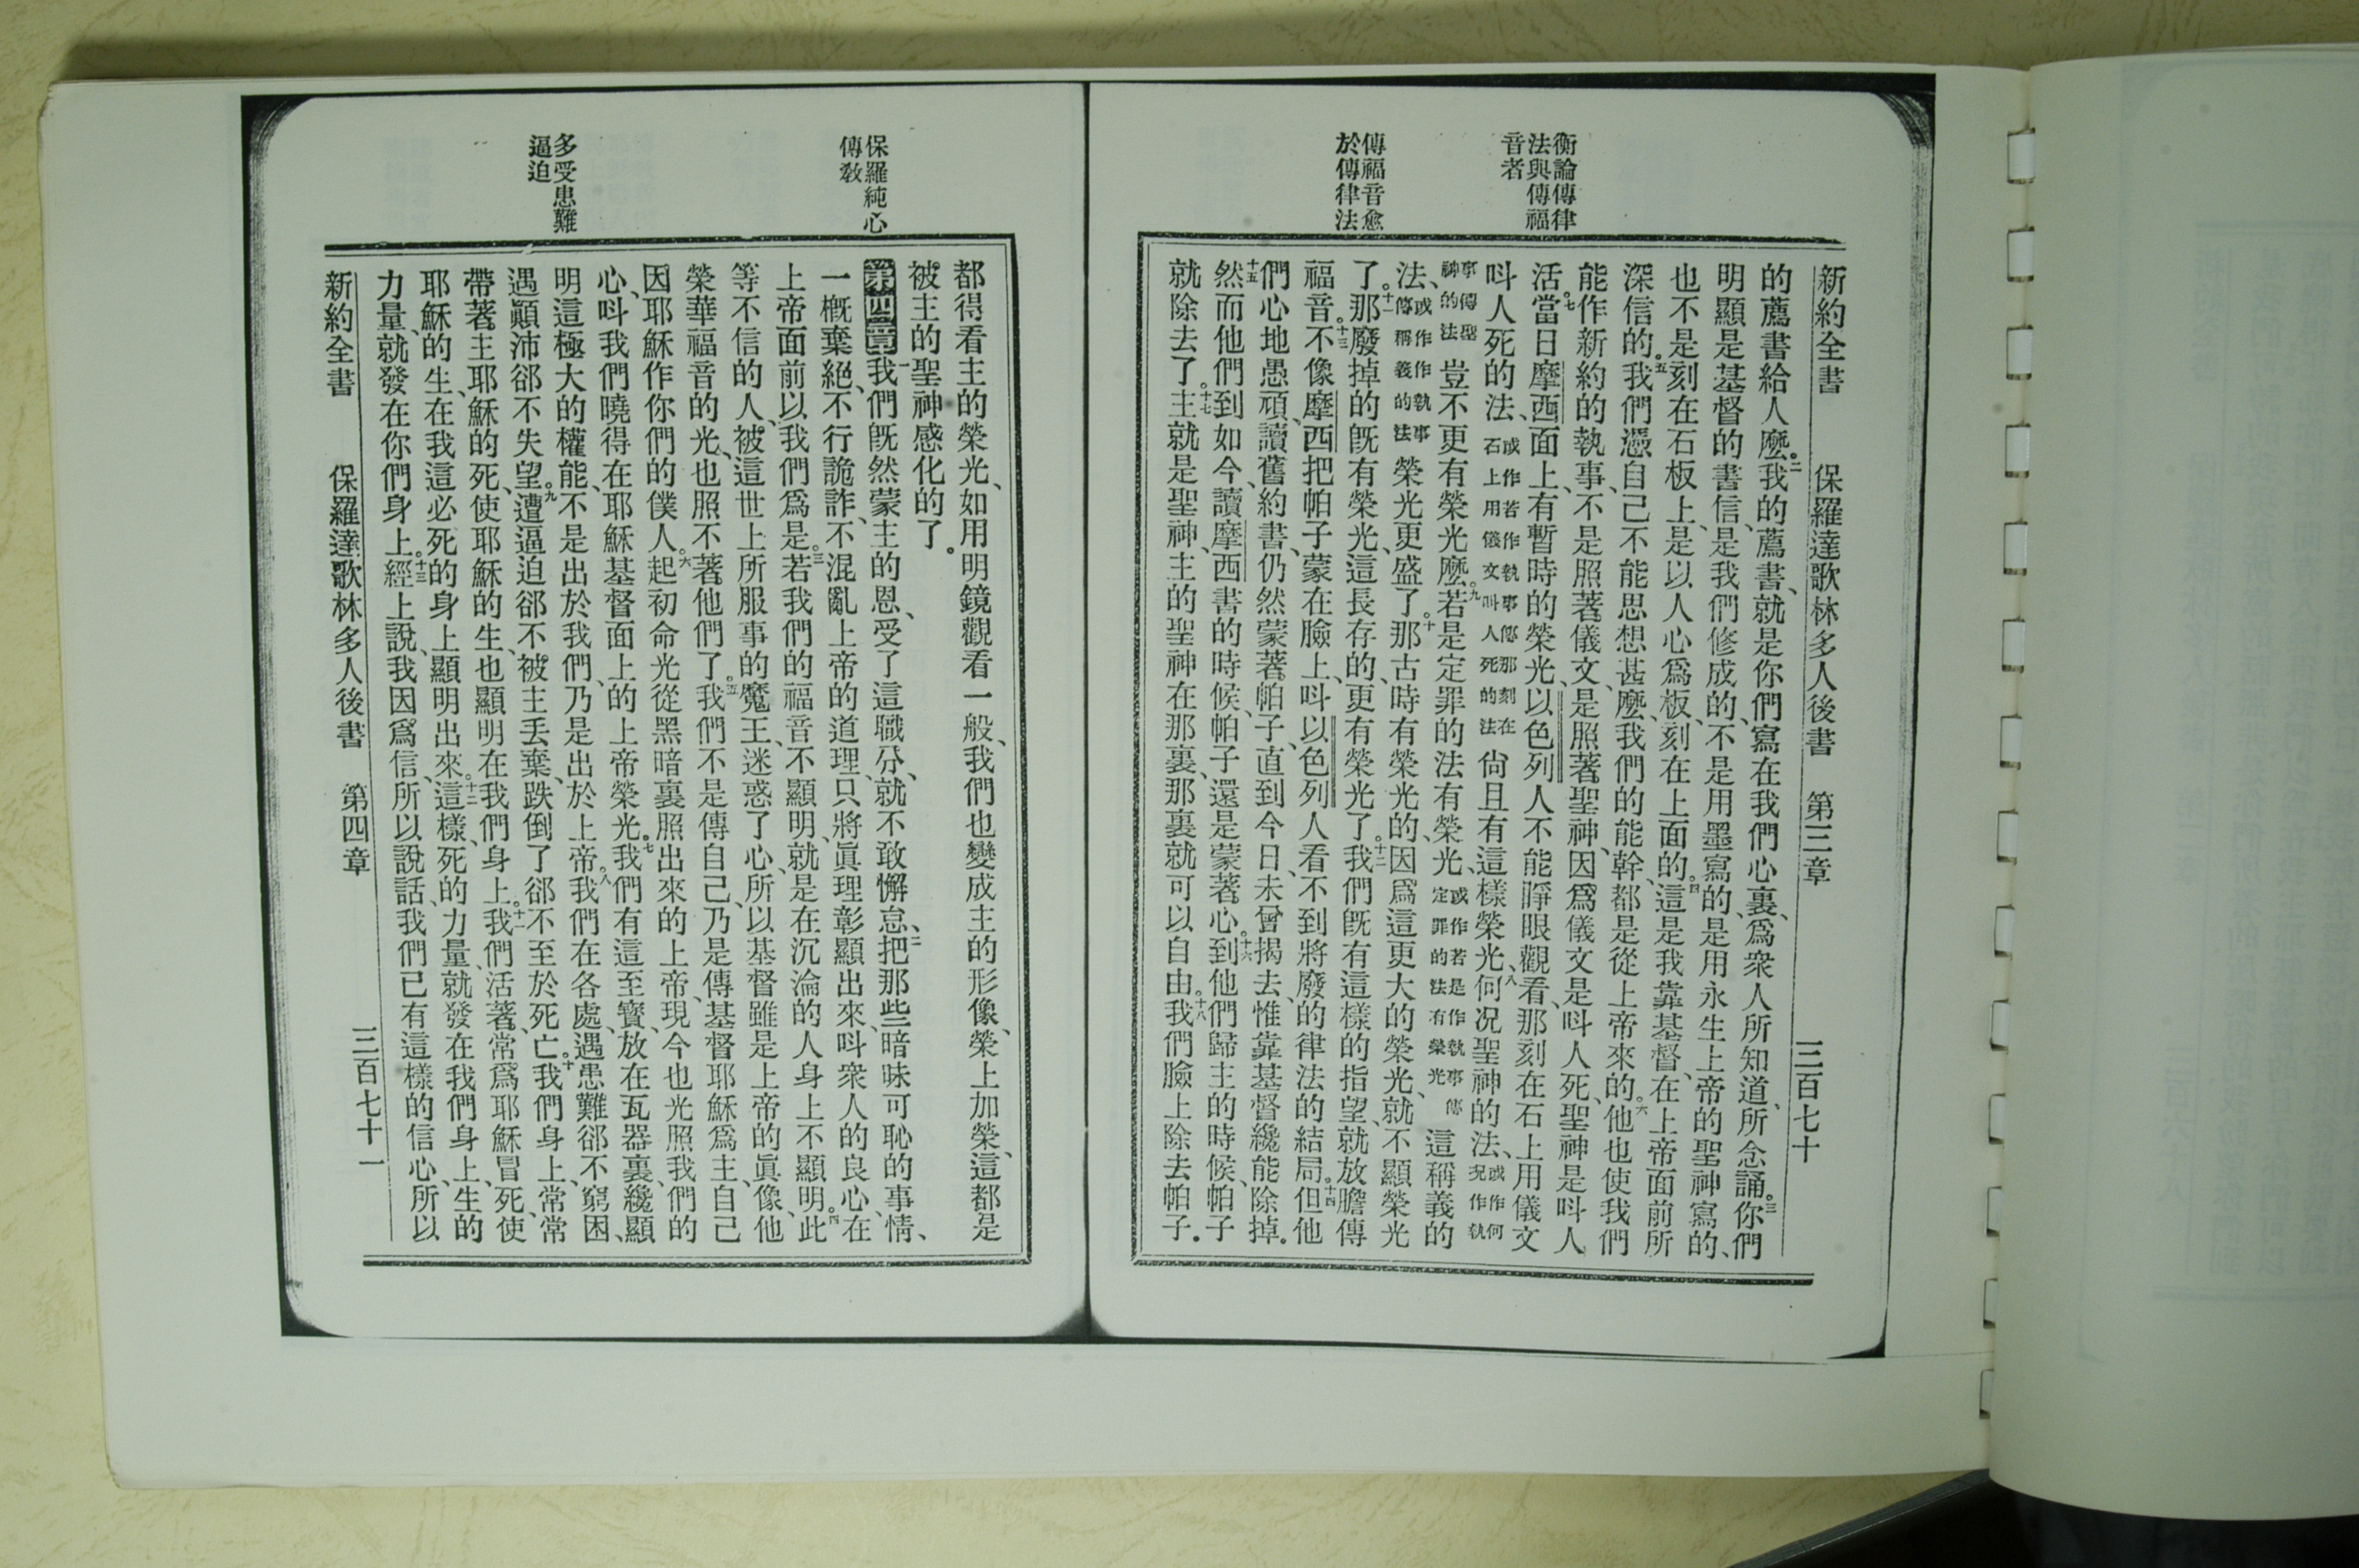 衡論傳律
法與傳福
音者
傳福音愈
於傳律法
新約全書 保羅達歌林多人後書 第三章 三百七十
的薦書給人麼。二我的薦書、就是你們寫在我們心裏、爲衆人所知道、所念誦。三你們
明顯是基督的書信、是我們修成的、不是用墨寫的、是用永生上帝的聖神寫的、
也不是刻在石板上、是以人心爲板、刻在上面的。四這是我靠基督、在上帝面前所
深信的。五我們憑自己不能思想甚麼、我們的能幹、都是從上帝來的。六他也使我們
能作新約的執事、不是照著儀文、是照著聖神、因爲儀文是呌人死、聖神是呌人
活。七當日摩西面上、有暫時的榮光、以色列人不能睜眼觀看、那刻在石上用儀文
呌人死的法、或作若作執事傳那刻在石上用儀文呌人死的法 尙且有這樣榮光、八何况聖神的法、或作何况作執
事傳聖神的法 豈不更有榮光麼。九若是定罪的法有榮光、或作若是作執事傳定罪的法有榮光 這稱義的
法、或作作執事傳稱義的法 榮光更盛了。十那古時有榮光的、因爲這更大的榮光、就不顯榮光
了。十一那廢掉的旣有榮光、這長存的、更有榮光了。十二我們旣有這樣的指望、就放膽傳
福音。十三不像摩西把帕子蒙在臉上、呌以色列人看不到將廢的律法的結局。十四但他
們心地愚頑、讀舊約書、仍然蒙著帕子、直到今日、未曾揭去、惟靠基督纔能除掉。
十五然而他們到如今、讀摩西書的時候、帕子還是蒙著心。十六到他們歸主的時候、帕子
就除去了。十七主就是聖神、主的聖神在那裏、那裏就可以自由。十八我們臉上除去帕子.
保羅純心
傳敎
多受患難
逼迫
都得看主的榮光、如用明鏡觀看一般、我們也變成主的形像、榮上加榮、這都是
被主的聖神感化的了。
第四章 一我們旣然蒙主的恩、受了這職分、就不敢懈怠、二把那些暗昧可恥的事情、
一槪棄絕、不行詭詐、不混亂上帝的道理、只將眞理彰顯出來、呌衆人的良心、在
上帝面前以我們爲是。三若我們的福音不顯明、就是在沉淪的人身上不顯明。四此
等不信的人、被這世上所服事的魔王、迷惑了心、所以基督雖是上帝的眞像、他
榮華福音的光、也照不著他們了。五我們不是傳自己、乃是傳基督耶穌爲主、自己
因耶穌作你們的僕人。六起初命光從黑暗裏照出來的上帝、現今也光照我們的
心、呌我們曉得在耶穌基督面上的上帝榮光。七我們有這至寳、放在瓦器裏、纔顯
明這極大的權能、不是出於我們、乃是出於上帝。八我們在各處、遇患難郤不窮困、
遇顚沛郤不失望。九遭逼迫郤不被主丟棄、跌倒了郤不至於死亡。十我們身上、常常
帶著主耶穌的死、使耶穌的生、也顯明在我們身上。十一我們活著、常爲耶穌冒死、使
耶穌的生、在我這必死的身上顯明出來。十二這樣、死的力量、就發在我們身上、生的
力量、就發在你們身上。十三經上說、我因爲信、所以說話、我們已有這樣的信心、所以
新約全書 保羅達歌林多人後書 第四章 三百七十一